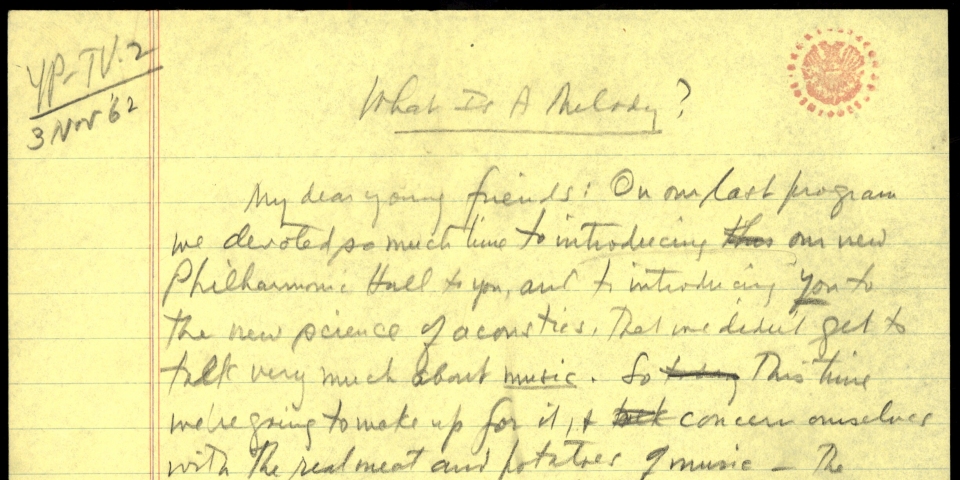 YP-TV.2
3 Nov '62
What Is A Melody?
My dear young friends: On our last program
we devoted so much time to introducing this our new
Philharmonic Hall to you, and to introducing you to
the new science of acoustics, that we didn't get to
talk very much about music. So today This time
we're going to make up for it, & concern ourselves
with the real meat and potatoes of music — The